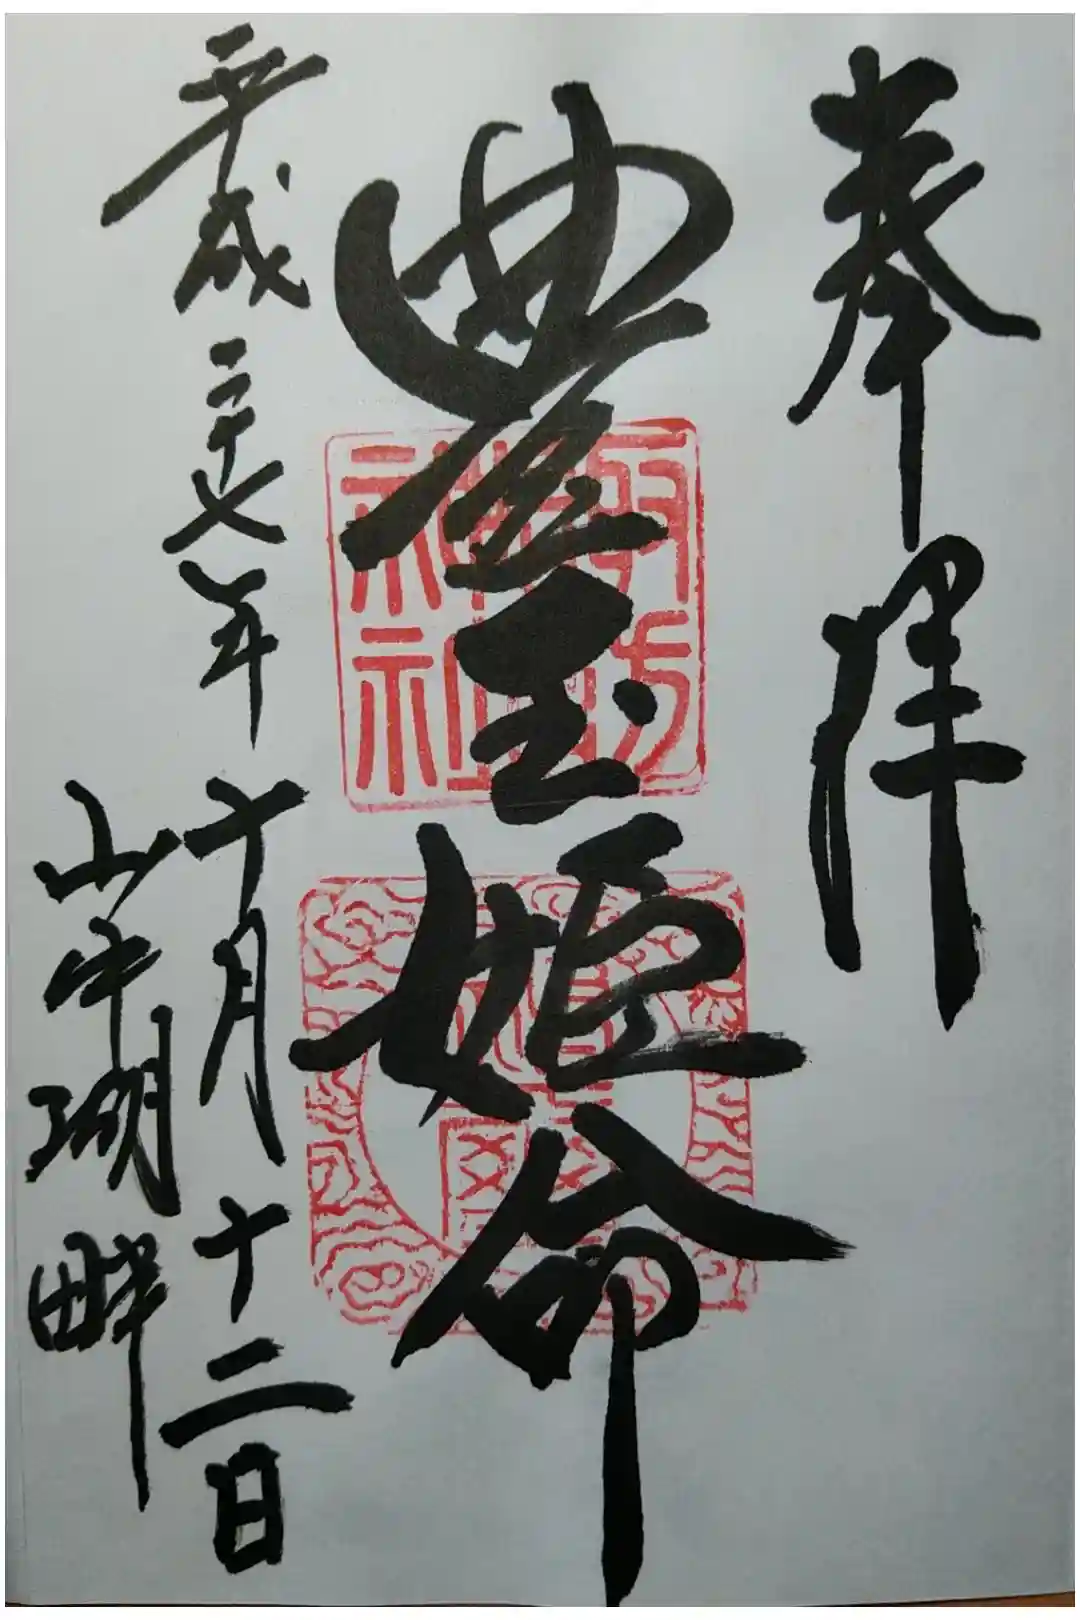 奉拝
豊玉姫命
平成二十七年十月十二日
山中湖畔
諏訪神社